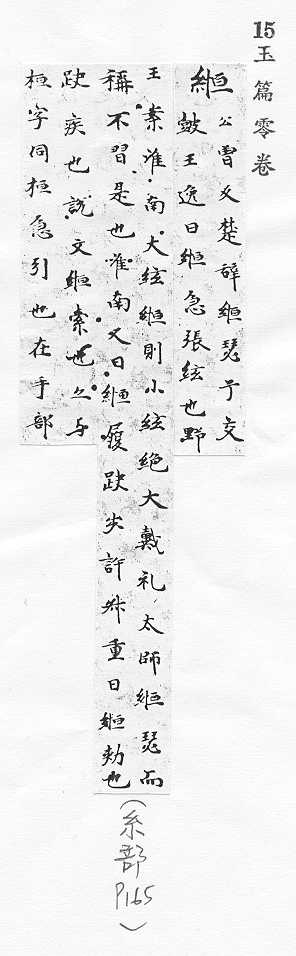 15 玉篇零卷
緪 公曾反楚辭緪瑟兮交
皷王逸曰緪急張絃也野
王案淮南大絃緪則小絃絶大戴礼太師緪瑟而
稱不習是也淮南又曰緪履趹步許叔重曰緪勑也
趹疾也說文緪索也亦与
搄字同搄急引也在手部
(糸部 P165)